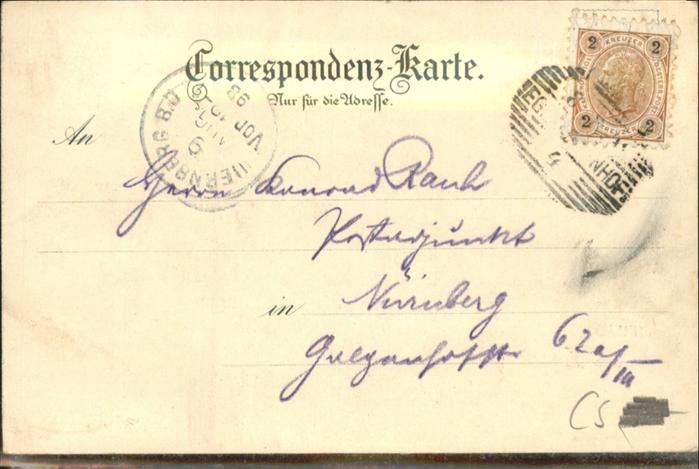 Correspondenz-Karte.
Nur für die Adresse.
2 KREUZER 2
2 KREUZER 2
NUERNBERG B.O.
9
AUG
VOR
98
An
Herrn Konrad Rauh
Postadjunkt
in Nürnberg
62a/III
CS